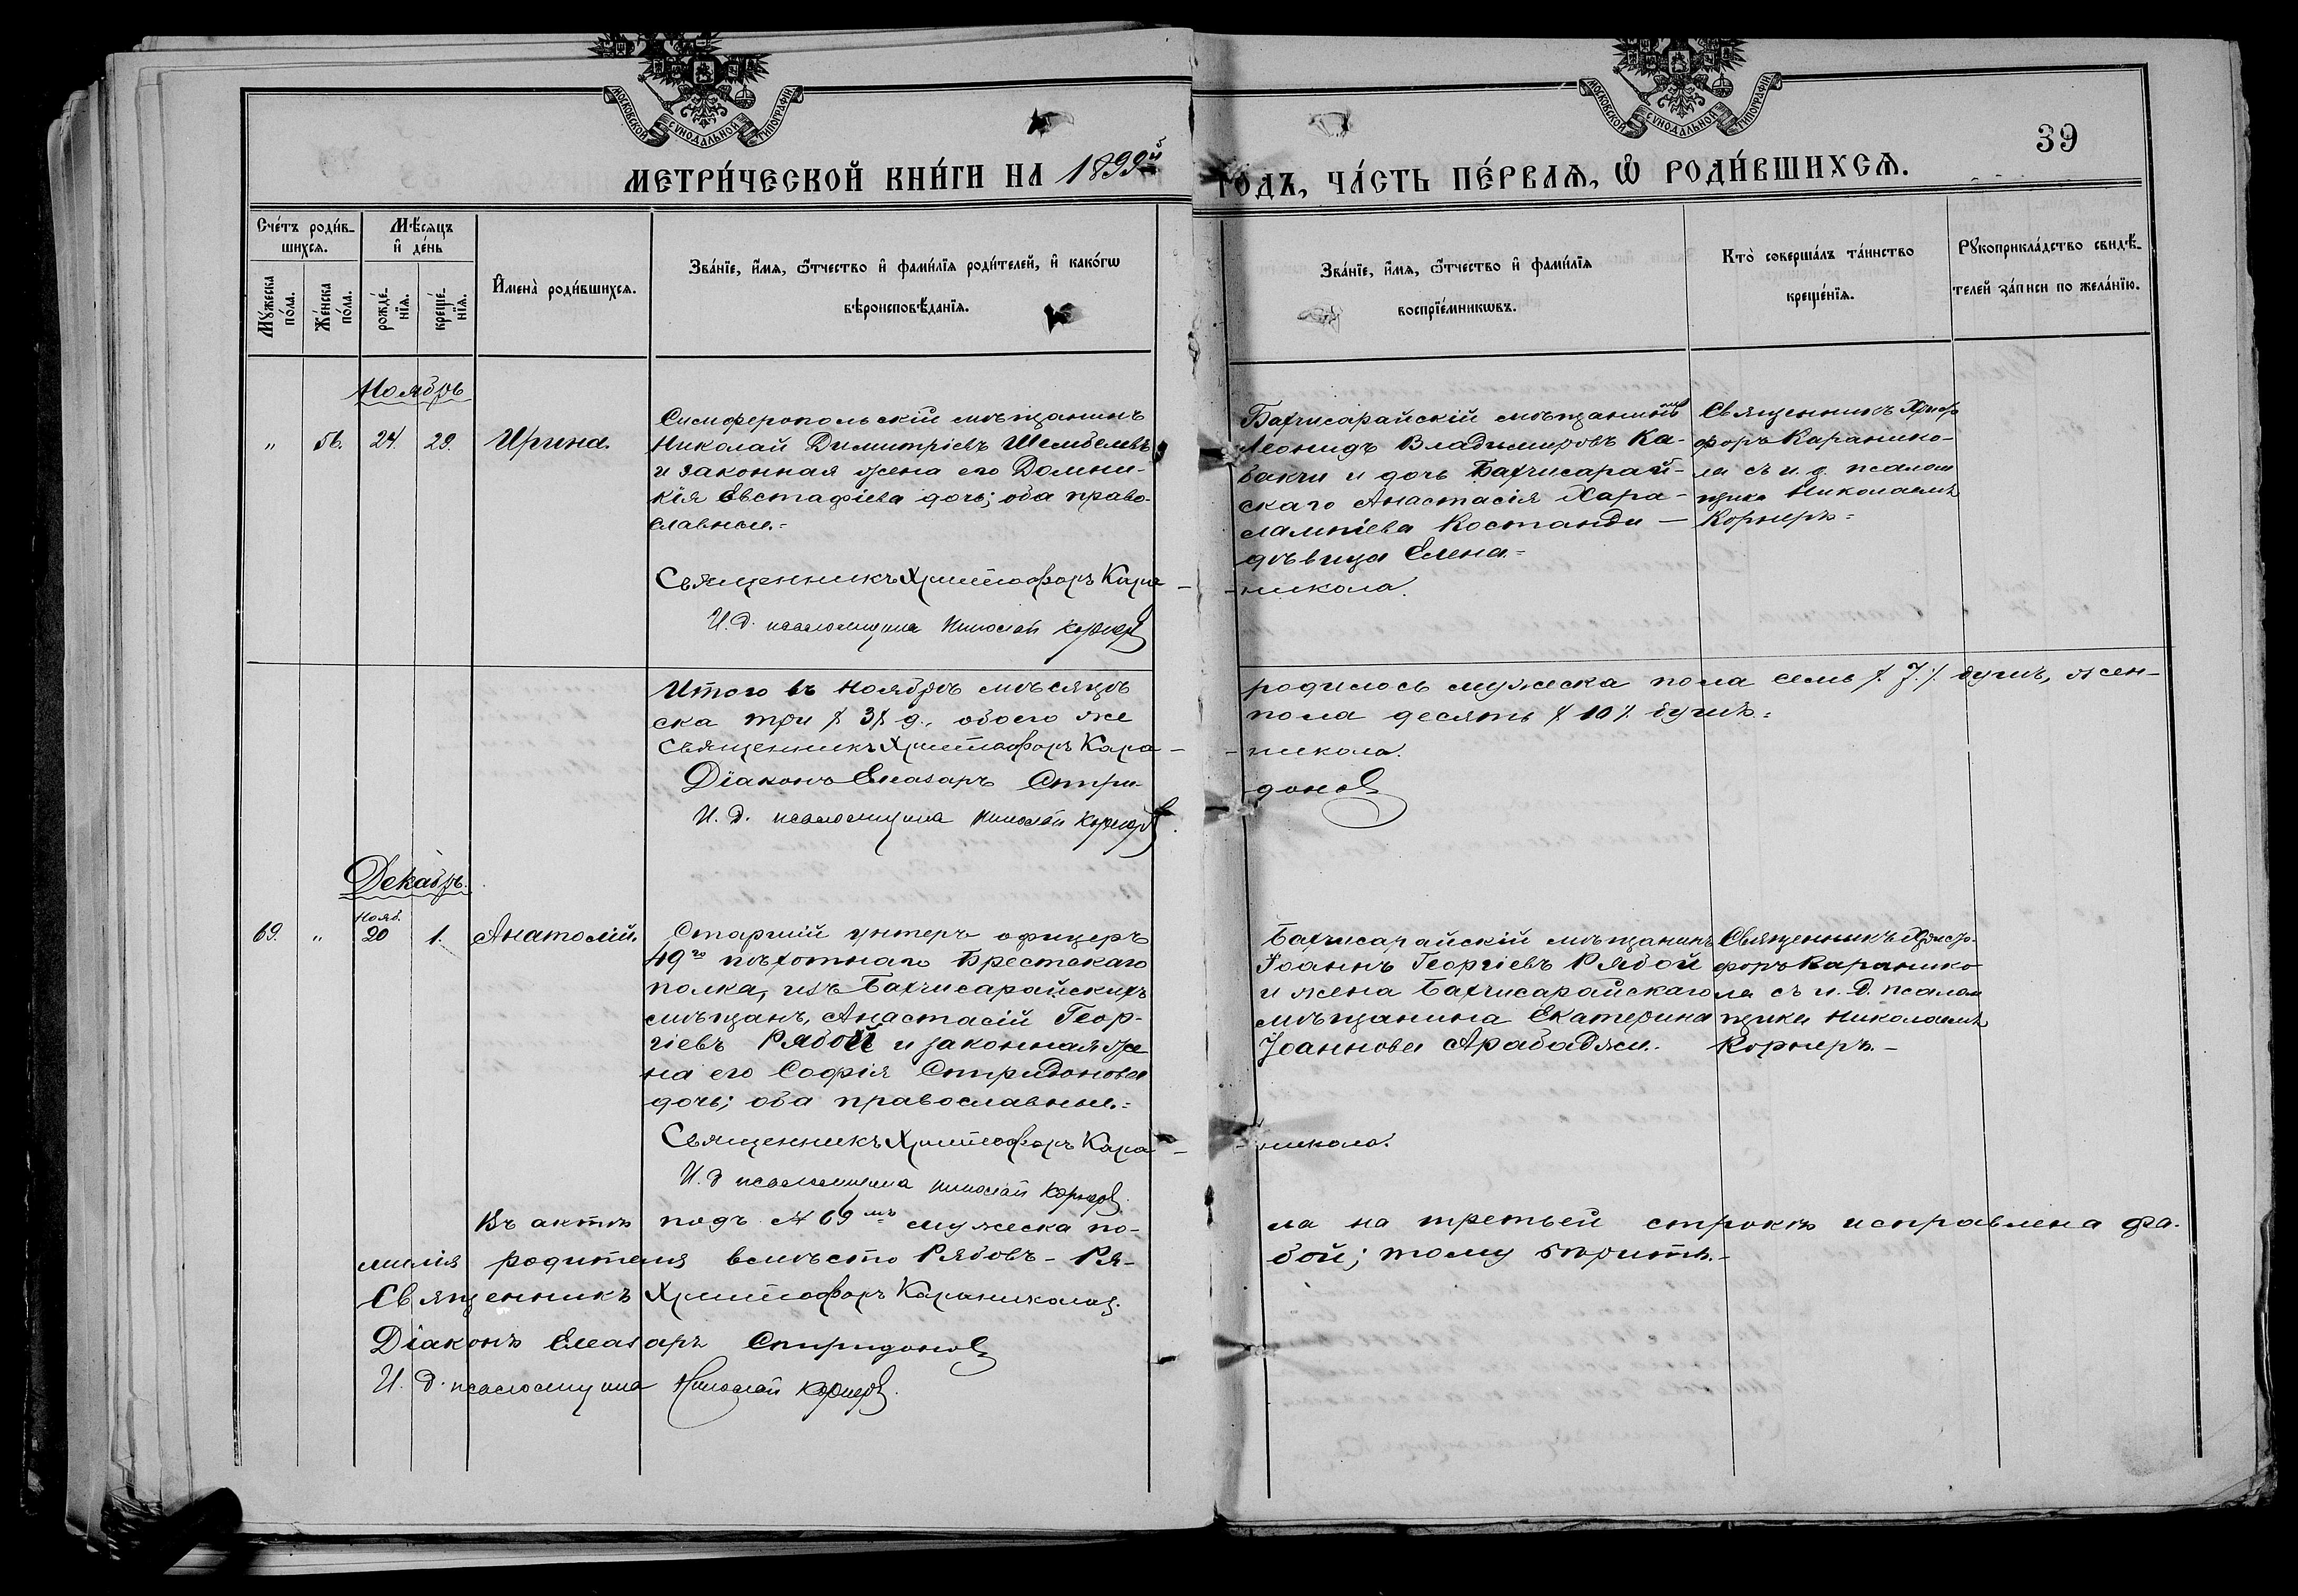 МОСКОВСКОЙ СѴНОДАЛЬНОЙ ТИПОГРАФІИ
МОСКОВСКОЙ СѴНОДАЛЬНОЙ ТИПОГРАФІИ
39
МЕТРИ́ЧЕСКОЙ КНИ́ГИ НА 1899й ГОДЪ, ЧА́СТЬ ПЕ́РВАѦ, Ѡ РОДИ́ВШИХСѦ.
Сче́тъ роди́в-
шихсѧ.
Мꙋ́жеска по́ла.
Же́нска по́ла.
Мѣ́сѧцъ
и҆ де́нь
рожде́-нїѧ.
креще́-нїѧ.
И҆мена̀ роди́вшихсѧ.
Зва́нїе, и҆́мѧ, ѻ҆́тчество и҆ фамѝлїѧ роди́телей, и҆ како́гѡ
вѣроисповѣ́данїѧ.
Зва́нїе, и҆́мѧ, ѻ҆́тчество и҆ фами́лїѧ
воспрїе́мникѡвъ.
Кто̀ соверша́лъ та́инство
креще́нїѧ.
Рꙋкоприкла́дство свидѣ́-
телей за́писи по жела́нїю.
Ноябрь
" 56. 24. 29. Ирина.
Симферопольскій мѣщанинъ
Николай Димитріевъ Шембелевъ
и законная жена его Домни-
кія Евстафіева дочь; оба право-
славные.=
Бахчисарайскій мѣщанинъ
Леонидъ Владимировъ Ка-
вакчи и дочь Бахчисарай-
скаго Анастасія Хара-
лампіева Костанди —
дѣвица Елена.=
Священникъ Христо
форъ Каранико-
ла съ и. д. псалом
щика Николаемъ
Корнеръ=
Священникъ Христофоръ Кара-
-никола.
И. д. псаломщика Николай Корнеръ
Итого въ Ноябрѣ мѣсяцѣ родилось мужеска пола семь /.7./. душъ, жен-
ска три /3/ д., обоего же пола десять /10/. душъ.=
Священникъ Христофоръ Кара- -никола.
Діаконъ Елеазаръ Спири- доновъ
И. д. псаломщика Николай Корнеръ.
Декабрь.
69. " Нояб. 20 1. Анатолій.
Старшій унтеръ офицеръ
49го пѣхотнаго Брестскаго
полка, изъ Бахчисарайскихъ
мѣщанъ, Анастасій Геор-
гіевъ Рябой и законная же
на его Софія Спиридонова
дочь; оба православные.=
Бахчисарайскій мѣщанинъ
Іоаннъ Георгіевъ Рябой
и жена Бахчисарайскаго
мѣщанина Екатерина
Іоаннова Арабаджи.
Священникъ Христо-
форъ Каранико
ла съ и. д. псалом
щика Николаемъ
Корнеръ.-
Священникъ Христофоръ Кара- -никола.
И. д псаломщика Николай Корнеръ.
Въ актѣ подъ № 69мъ мужеска по- ла на третьей строкѣ исправлена фа-
милія родителя вмѣсто Рябовъ - Ря- бой; тому вѣрить.-
Священникъ Христофоръ Караникола.
Діаконъ Елеазаръ Спиридоновъ
И. д. псаломщика Николай Корнеръ.